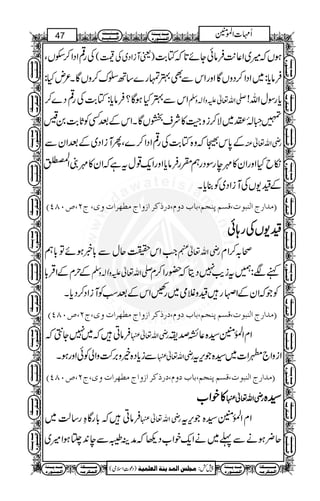 47
اُمہات المؤمنین
ہوں کہ میری اعانت فرمائی جائے تاکہ کتابت (یعنی آزادی کی قیمت) کی رقم ادا کرسکوں،
فرمایا: میں ادا کردوں گا اور اس سے بھی بہتر تمہارے ساتھ سلوک کروں گا۔ عرض کیا:
یارسول اللہ! صلی اللہ تعالیٰ علیہ والہ وسلم اس سے بہتر کیا ہوگا؟ فرمایا: کتابت کی رقم ادا کر کے
تمہیں حبالۂ عقد میں لاکر زوجیت کا شرف بخشوں گا۔ اس کے بعد کسی کو ثابت بن قیس
رضی اللہ تعالیٰ عنہ کے پاس بھیجا کہ وہ کتابت کی رقم ادا کرے، پھر آزادی کے بعد ان سے
نکاح کیا اور ان کا مہر چار سو درہم مقرر فرمایا اور ایک قول یہ ہے کہ ان کا مہر بنی المصطلق
کے قیدیوں کی آزادی کو بنایا۔
(مدارج النبوت، قسم پنجم، باب دوم، درذکر ازواج مطہرات وی، ج۲، ص۴۸۰)
قیدیوں کی رہائی
صحابہ کرام رضی اللہ تعالیٰ عنہم جب اس حقیقت حال سے باخبر ہوئے تو باہم
کہنے لگے: ہمیں یہ زیب نہیں دیتا کہ حضور اکرم صلی اللہ تعالیٰ علیہ والہ وسلم کے حرم کے اقربا
کو جو کہ ان کے اصہار ہیں قید و غلامی میں رکھیں اس کے بعد سب کو آزاد کردیا۔
(مدارج النبوت، قسم پنجم، باب دوم، درذکر ازواج مطہرات وی، ج۲، ص۴۸۰)
ام المؤمنین سیدہ عائشہ صدیقہ رضی اللہ تعالیٰ عنہا فرماتی ہیں کہ میں نہیں جانتی کہ
ازواج مطہرات میں سیدہ جویریہ رضی اللہ تعالیٰ عنہا سے زیادہ خیر و برکت والی کوئی اور ہو۔
(مدارج النبوت، قسم پنجم، باب دوم، درذکر ازواج مطہرات وی، ج۲، ص۴۸۰)
سیدہ رضی اللہ تعالیٰ عنہا کا خواب
ام المؤمنین سیدہ جویریہ رضی اللہ تعالیٰ عنہا فرماتی ہیں کہ بارگاہِ رسالت میں
حاضر ہونے سے پہلے میں نے ایک خواب دیکھا کہ مدینہ طیبہ سے چاند چلتا ہوا میری
پیش کش: مجلس المدینۃ العلمیۃ (دعوتِ اسلامی)